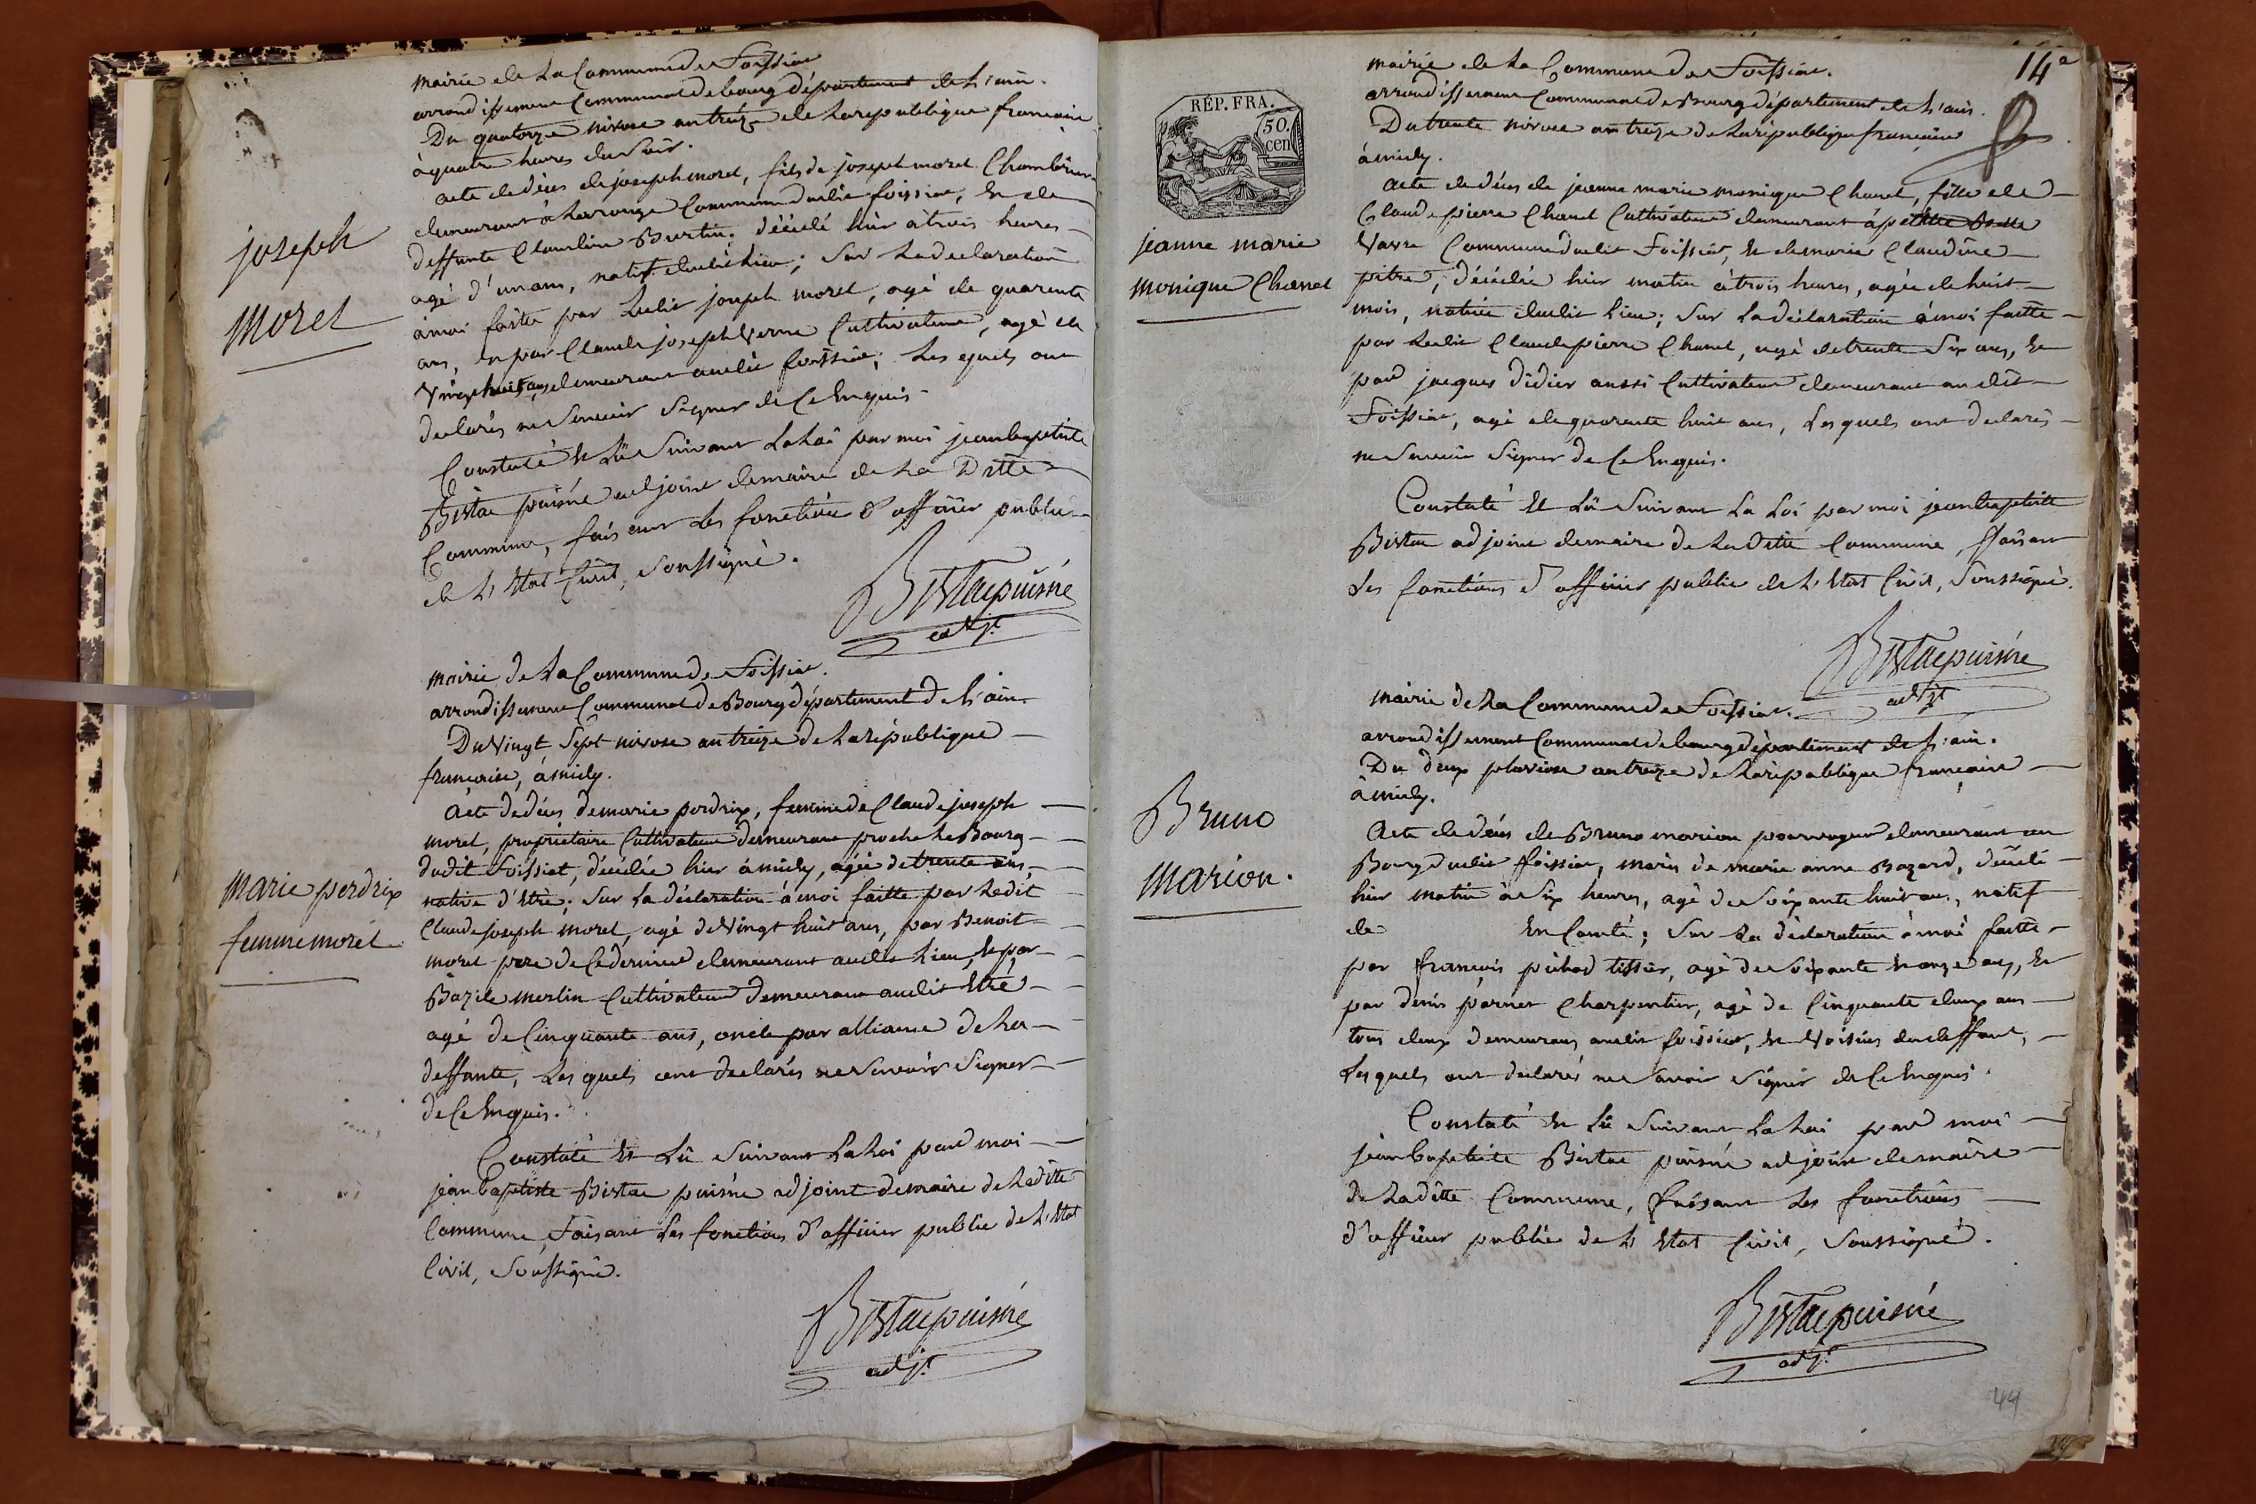 mairie de La Commune de Foissiat
arrondissement Communal de bourg département de L'ain.
Du quatorze nivose an treize de La republique francaise
à quatre heures du Soir.
acte de décès de joseph moret, fils de joseph moret
demeurant à Commune dudit foissiat, et de
deffunte Claudine Burtin, décédé hier à trois heures
agé d'un an, natif dudit Lieu; Sur La declaration
à moi faitte par Ledit joseph moret, agé de quarente
ans, et par Claude joseph Verne Cultivateur, agé de
Vingt huit ans, demeurant audit foissiat; Les quels ont
declarés ne Scavoir Signer de Ce Enquis.
Constaté et Lü Suivant La Loi par moi jean baptiste
puisné adjoint de maire de La Ditte
Commune, faisant Les fonctions d'officier public
de L'Etat Civil, Soussigné.
puisné
adjt.
joseph
moret
mairie de La Commune de Foissiat.
arrondissement Communal de Bourg département de L'ain.
Du Vingt Sept nivose an treize de La république
francaise, à midy.
Acte de décès de marie perdrix, femme de Claude joseph
moret, proprietaire Cultivateur demeurant proche Le Bourg
dudit Foissiat, décédée hier à midy, agée de trente ans,
native d'Etré; Sur La déclaration à moi faitte par Ledit
Claude joseph moret, agé de Vingt huit ans, par Benoit
moret pere de Ce dernier demeurant audit Lieu, et par
Bazile merlin Cultivateur demeurant audit Etré,
agé de Cinquante ans, oncle par alliance de La
deffunte, Les quels ont declarés ne Scavoir Signer
de Ce Enquis.
Constaté Et Lü Suivant La Loi par moi
jean baptiste puisné adjoint de maire de Laditte
Commune, Faisant Les fonctions d'officier public de L'Etat
Civil, Soussigné.
puisné
adjt.
marie perdrix
femme moret
14e
RÉP. FRA.
50.
cen
mairie de La Commune de Foissiat.
arrondissement Communal de Bourg département de L'ain.
Du trente nivose an treize de La république francaise
à midy.
Acte de décès de jeanne marie monique Chanel, fille de
Claude pierre Chanel Cultivateur demeurant à
Vavre Commune dudit Foissiat, et de marie Claudine
pitre, décédée hier matin à trois heures, agée de huit
mois, native dudit Lieu; Sur La déclaration à moi faitte
par Ledit Claude pierre Chanel, agé de trente Six ans, et
par jacques Didier aussi Cultivateur demeurant audit
Foissiat, agé de quarente huit ans, Lesquels ont declarés
ne Scavoir Signer de Ce Enquis.
Constaté Et Lü Suivant La Loi par moi jean baptiste
adjoint de maire de La ditte Commune, Faisant
Les fonctions d'officier public de L'Etat Civil, Soussigné.
puisné
adjt
jeanne marie
monique Chanel
mairie de La Commune de Foissiat.
arrondissement Communal de bourg département de L'ain.
Du deux pluviose an treize de La république francaise
à midy.
Acte de décès de Bruno marion demeurant au
Bourg dudit foissiat, maris de marie anne Bazard, décédé
hier matin à Six heures, agé de Soixante huit ans, natif
de En Comté; Sur La déclaration à moi faitte
par françois tissier, agé de Soixante et onze ans, et
par denis Charpentier, agé de Cinquante deux ans
tous deux demeurans audit foissiat, et Voisins du deffunt,
Lesquels ont declarés ne Savoir Signer de Ce Enquis.
Constaté et Lü Suivant La Loi par moi
jean baptiste puisné adjoint de maire
de La ditte Commune, faisant Les fonctions
d'officier public de L'Etat Civil, Soussigné.
puisné
adjt.
Bruno
marion.
44